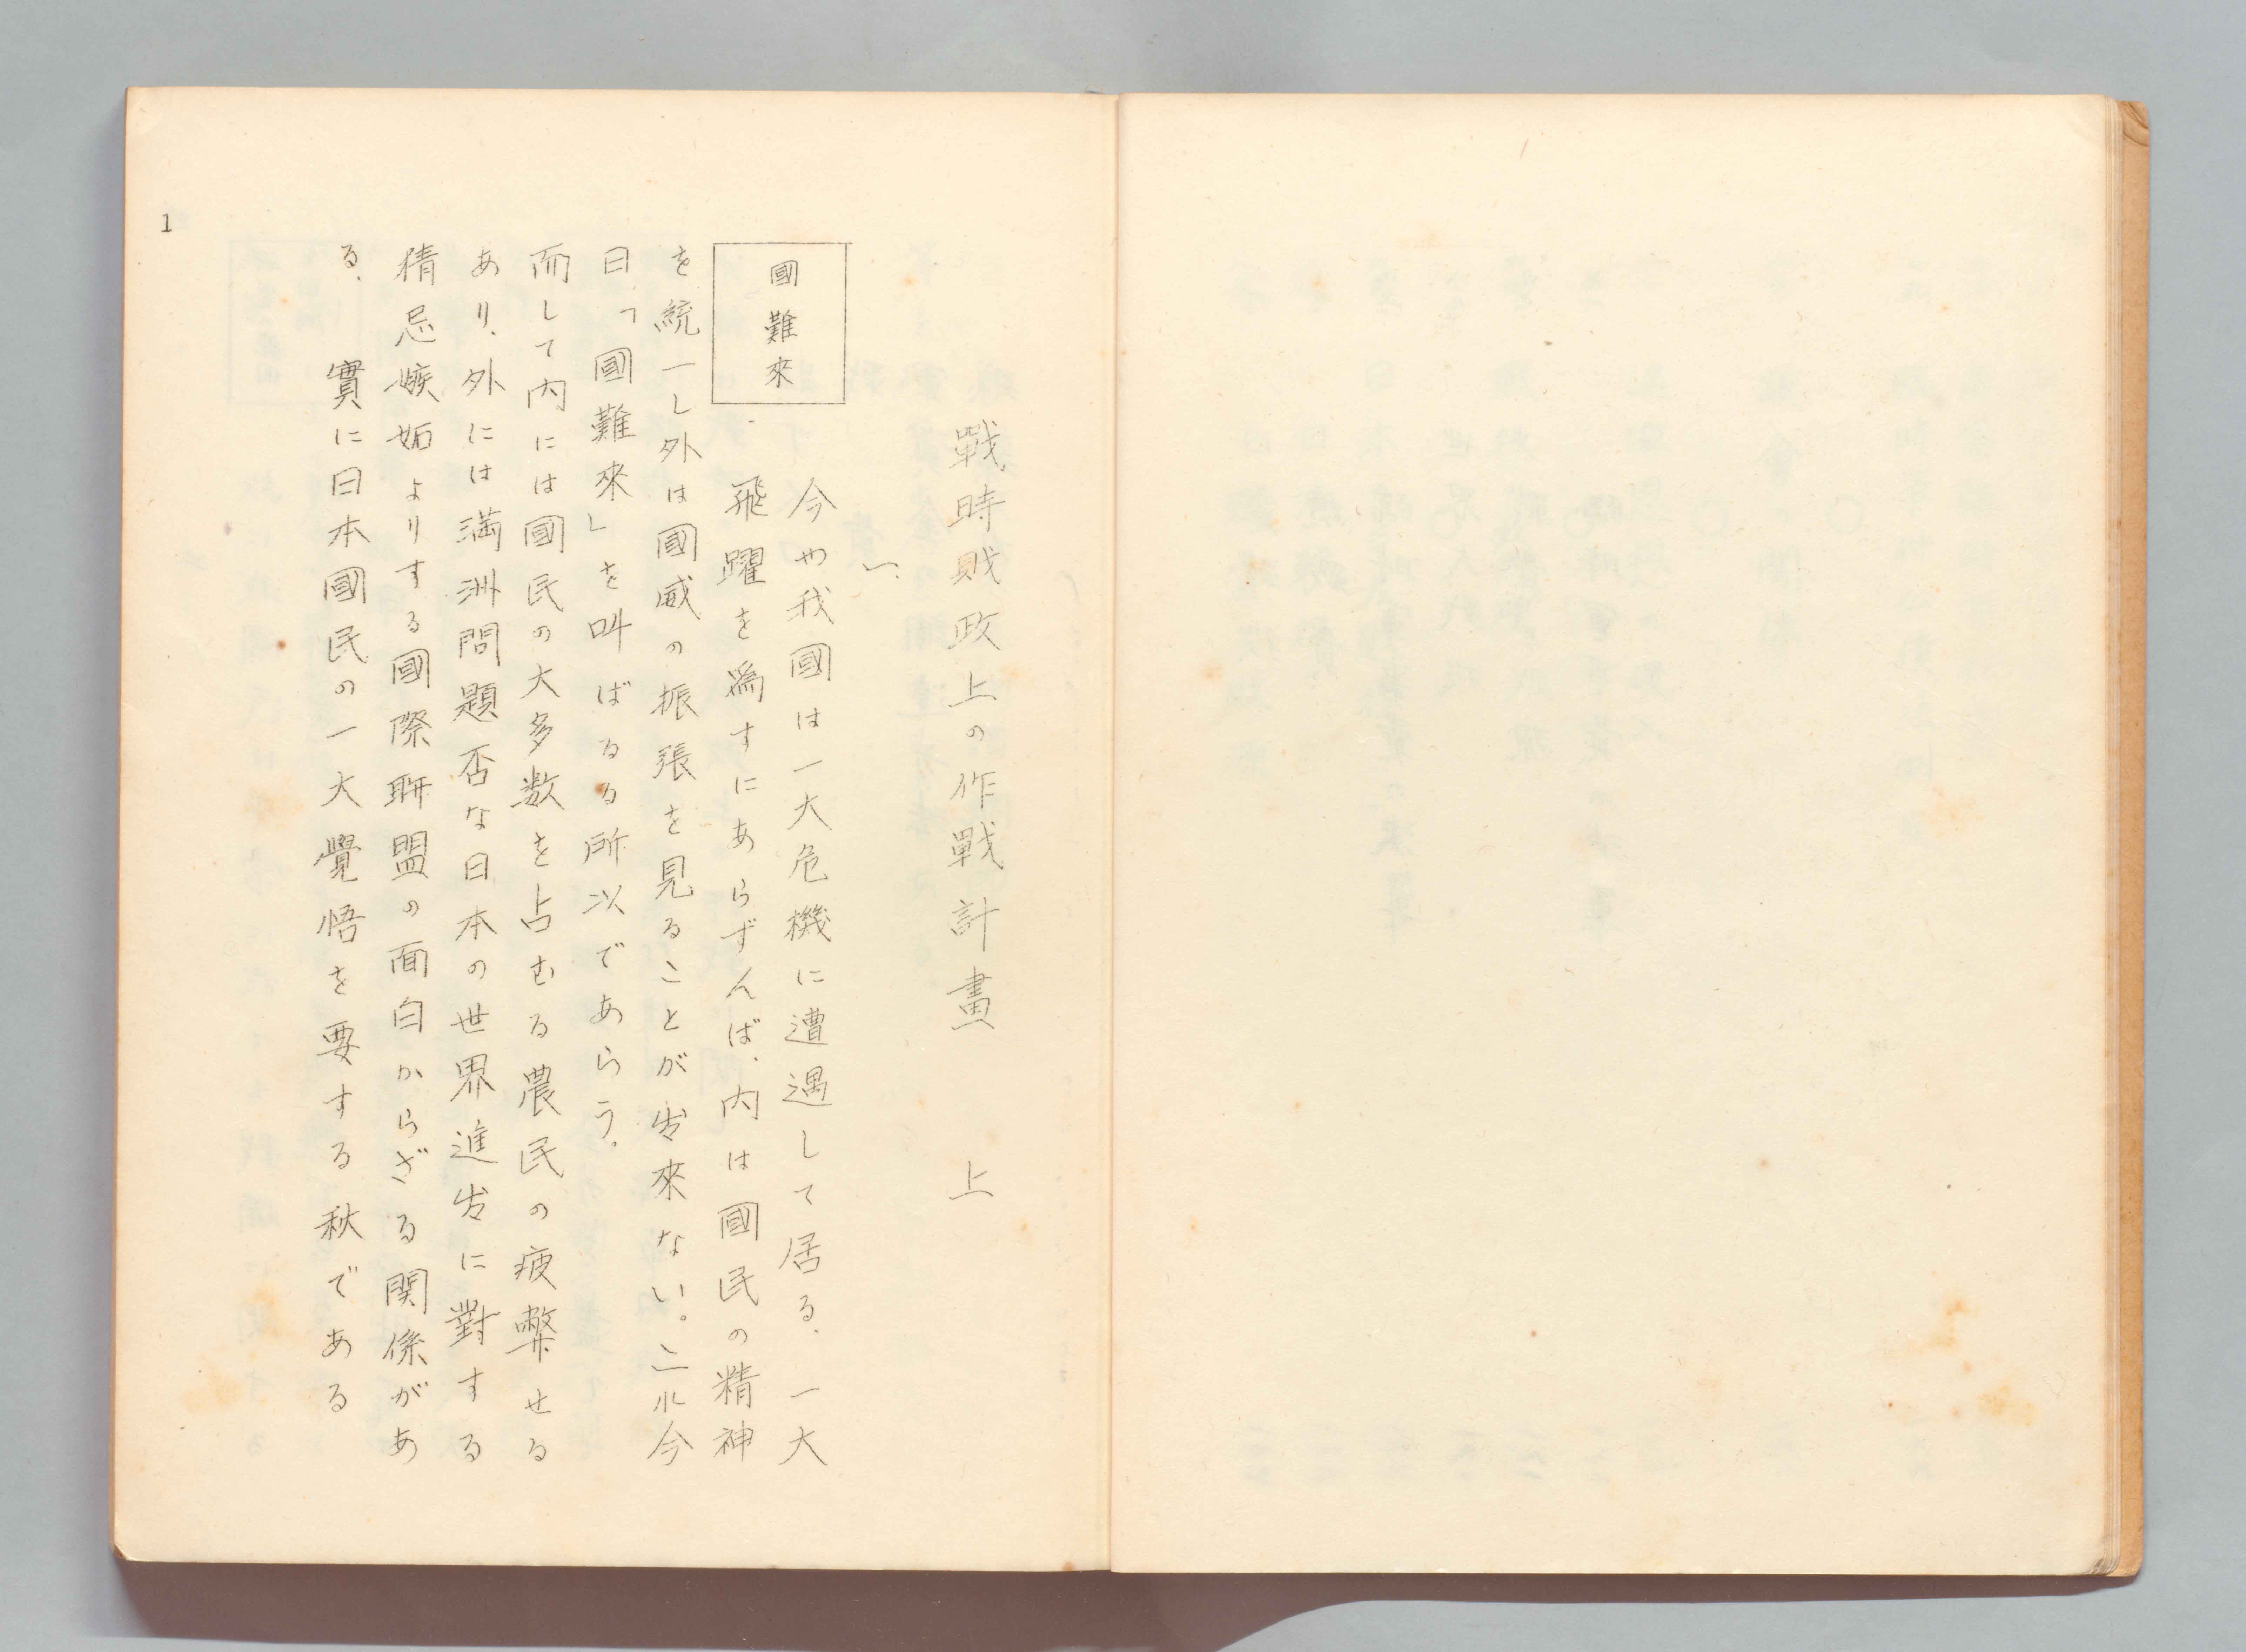 戰時財政上の作戰計畫　上
一、
國難來
今や我國は一大危機に遭遇して居る、一大
飛躍を爲すにあらずんば、内は國民の精神
を統一し外は國威の振張を見ることが出來ない。これ今
日「國難來」を叫ばるる所以であらう。
而して内には國民の大多数を占むる農民の疲弊せる
あり、外には満洲問題否な日本の世界進出に對する
猜忌嫉妬よりする國際聯盟の面白からざる関係があ
る、實に日本國民の一大覺悟を要する秋である
1